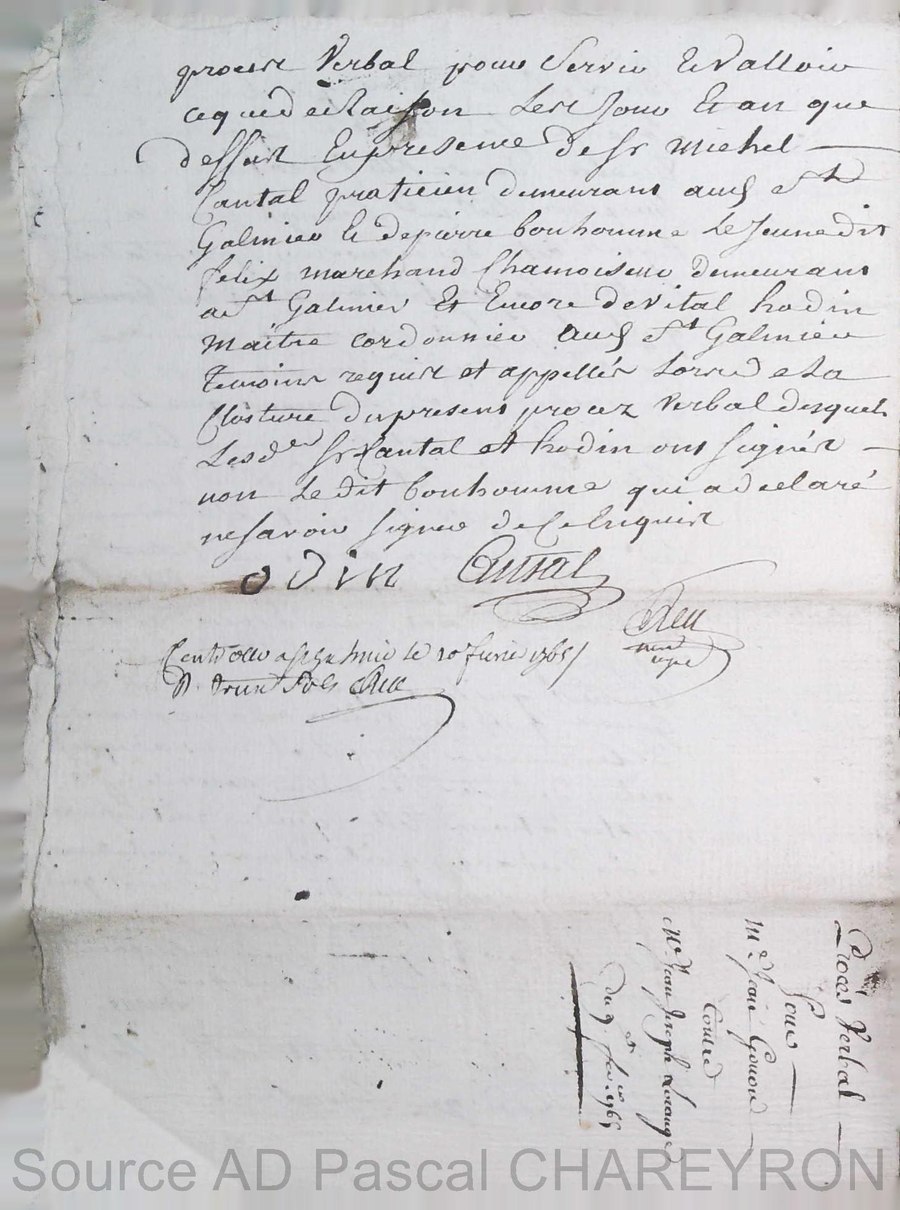 procest Verbal pour Servir Et Valloir
ceque de Raison Lest Jour Et an que
dessus En presence de Sr Michel
Cantal praticien demeurant aud St
Galmier Et de pierre bonhomme Le Jeune dit
felix marchand Chamoiseur demeurant
a St Galmier Et Encore de Vital hodin
maitre cordonnier aud St Galmier
temoins requist et appellés Lors de La
Closture du present procez Verbal desquels
Lesd. Sr Cantal et hodin ont signés
non Le dit bonhomme qui a declaré
ne savoir signer de Ce Enquist
odin Cantal
Controllé a le 10 1765
Procès Verbal
Pour
Me Jean
Contre
Me Jean Joseph
du 9 1765
Source AD Pascal CHAREYRON